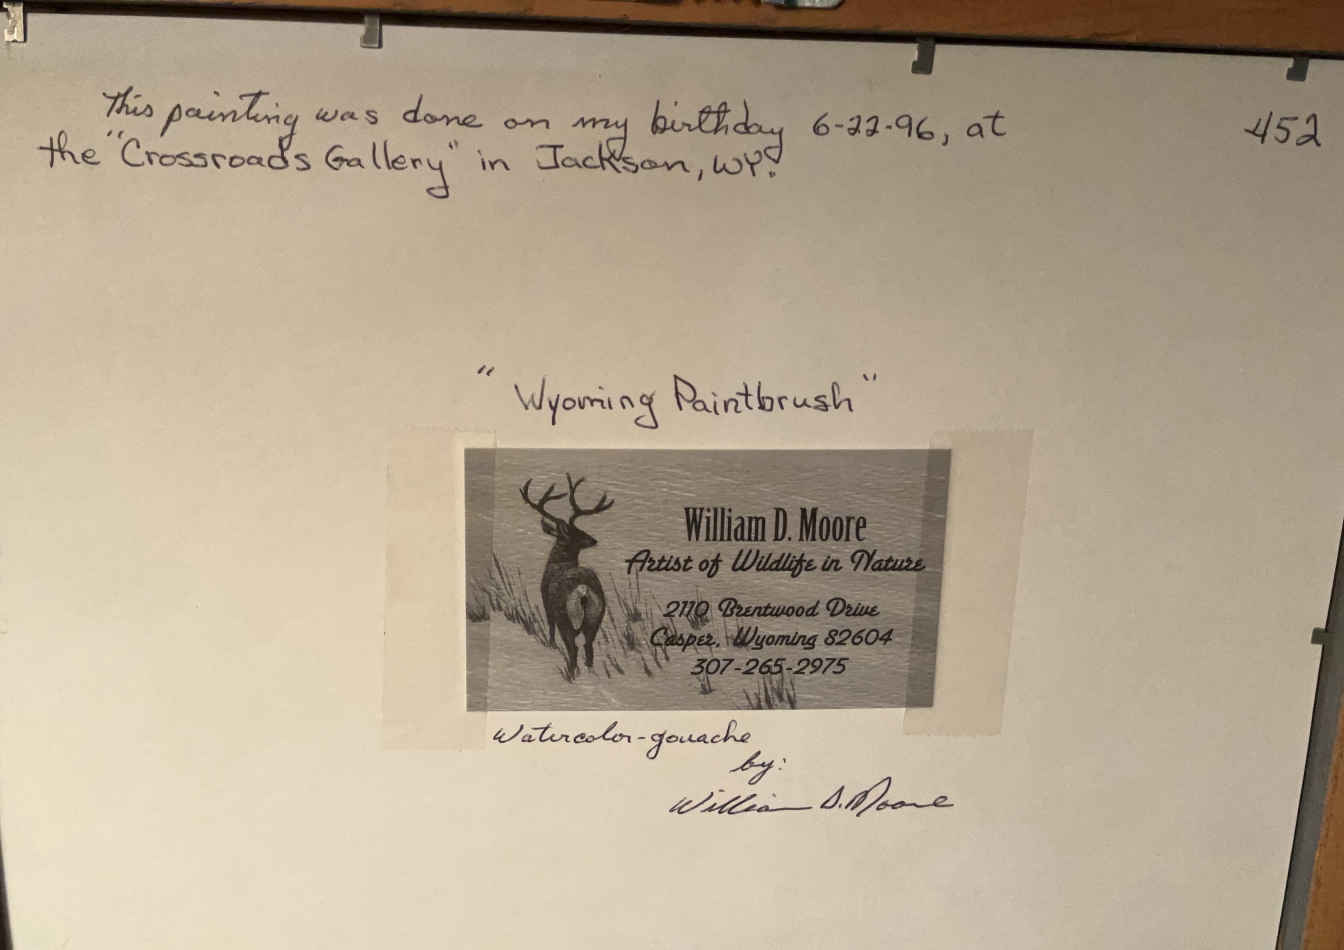 This painting was done on my birthday 6-22-96, at
452
the "Crossroads Gallery" in Jackson, WY.
"Wyoming Paintbrush"
William D. Moore
Artist of Wildlife in Nature
2110 Brentwood Drive
Casper, Wyoming 82604
307-265-2975
Watercolor-gouache
by:
William D. Moore